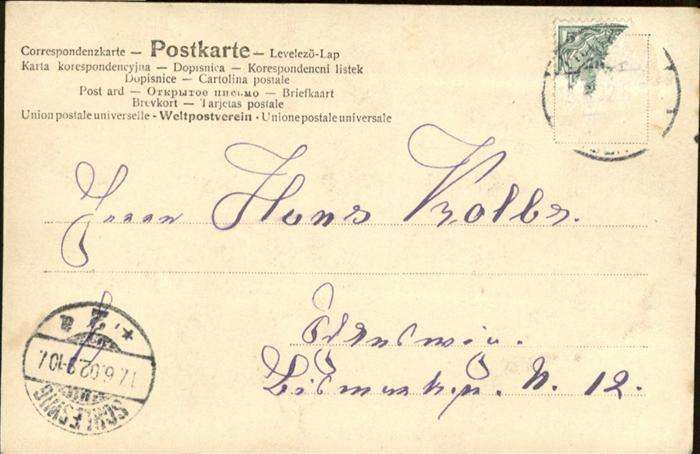 Correspondenzkarte – Postkarte – Levelező-Lap
Karta korespondencyjna – Dopisnica – Korespondencni listek
Dopisnice – Cartolina postale
Post ard – Открытое письмо – Briefkaart
Brevkort – Tarjetas postale
Union postale universelle - Weltpostverein - Unione postale universale
5
Herrn Hans Kolbs.
Bismarckp. N. 12.
17.6.02.9-10V
SCHLESWIG